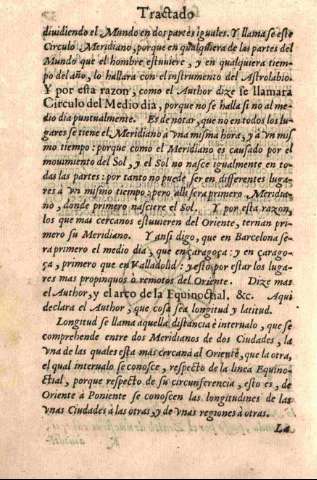 Tractado
dividiendo el Mundo en dos partes iguales. Y llama se este
Circulo Meridiano, porque en qualquiera de las partes del
Mundo que el hombre estuuiere, y en qualquiera tiem-
po del año, lo hallara con el instrumento del Astrolabio.
Y por esta razon, como el Author dize se llamara
Circulo del Medio dia, porque no se halla si no al me-
dio dia puntualmente. Es de notar, que no en todos los lu-
gares se tiene el Meridiano a vna misma hora, y a vn mis
mo tiempo: porque como el Meridiano es causado por el
mouimiento del Sol, y el Sol no nasce igualmente en to-
das las partes: por tanto no puede ser en differentes luga-
res a vn mismo tiempo; pero alli sera primero, Meridia-
no, donde primero nasciere el Sol. Y por esta razon,
los que mas cercanos estuuieren del Oriente, ternan pri-
mero su Meridiano. Y ansi digo, que en Barcelona se-
ra primero el medio dia, que en çaragoça: y en çarago-
ça, primero que en Valladolid: y esto por estar los luga-
res mas propinquos ò remotos del Oriente. Dize mas
el Author, y el arco de la Equinoctial, &c. Aqui
declara el Author, que cosa sea longitud y latitud.
Longitud se llama aquella distancia è interualo, que se
comprehende entre dos Meridianos de dos Ciudades, la
vna de las quales esta mas cercana al Oriente, que la otra,
el qual interualo se conosce, respecto de la linea Equino-
ctial, porque respecto de su circunferencia, esto es, de
Oriente à Poniente se conoscen las longitudines de las
vnas Ciudades à las otras, y de vnas regiones à otras.
La